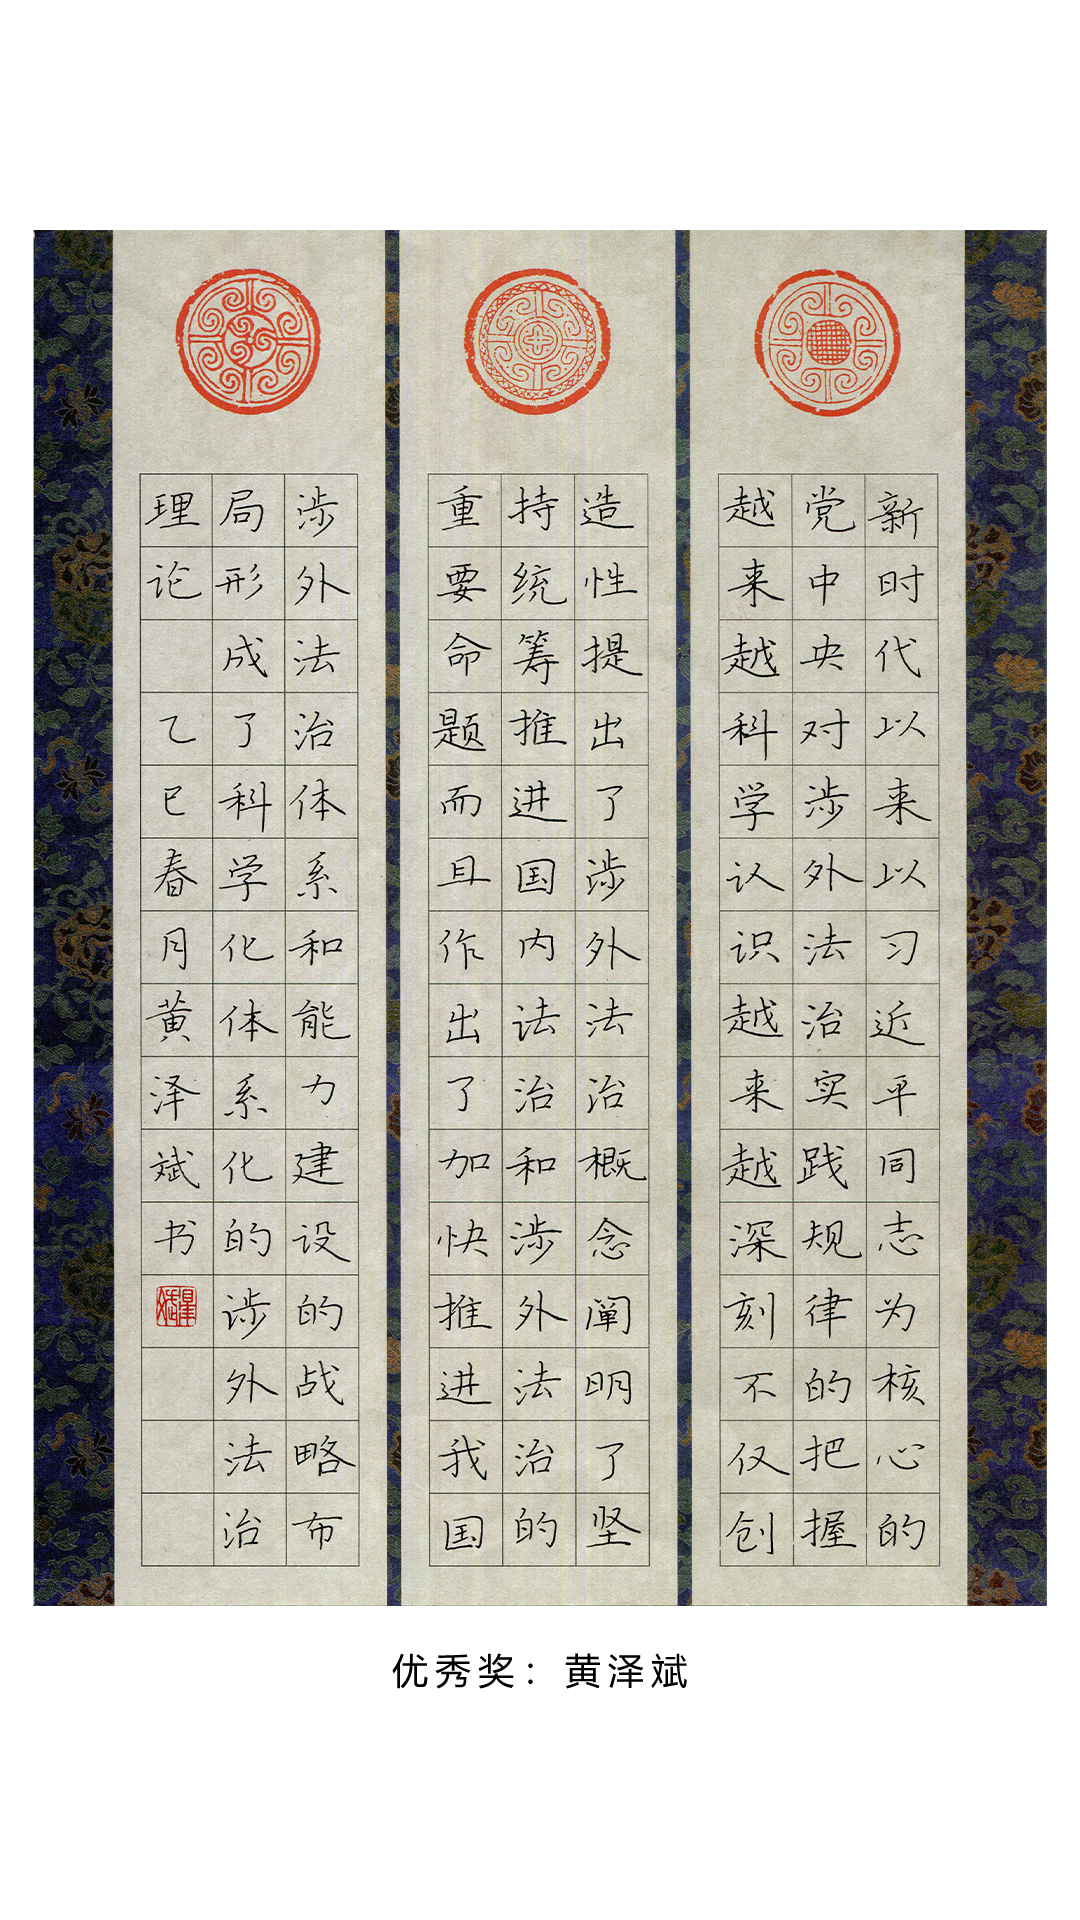 新时代以来以习近平同志为核心的
党中央对涉外法治实践规律的把握
越来越科学认识越来越深刻不仅创
造性提出了涉外法治概念阐明了坚
持统筹推进国内法治和涉外法治的
重要命题而且作出了加快推进我国
涉外法治体系和能力建设的战略布
局形成了科学化体系化的涉外法治
理论 乙巳春月黄泽斌书
优秀奖：黄泽斌